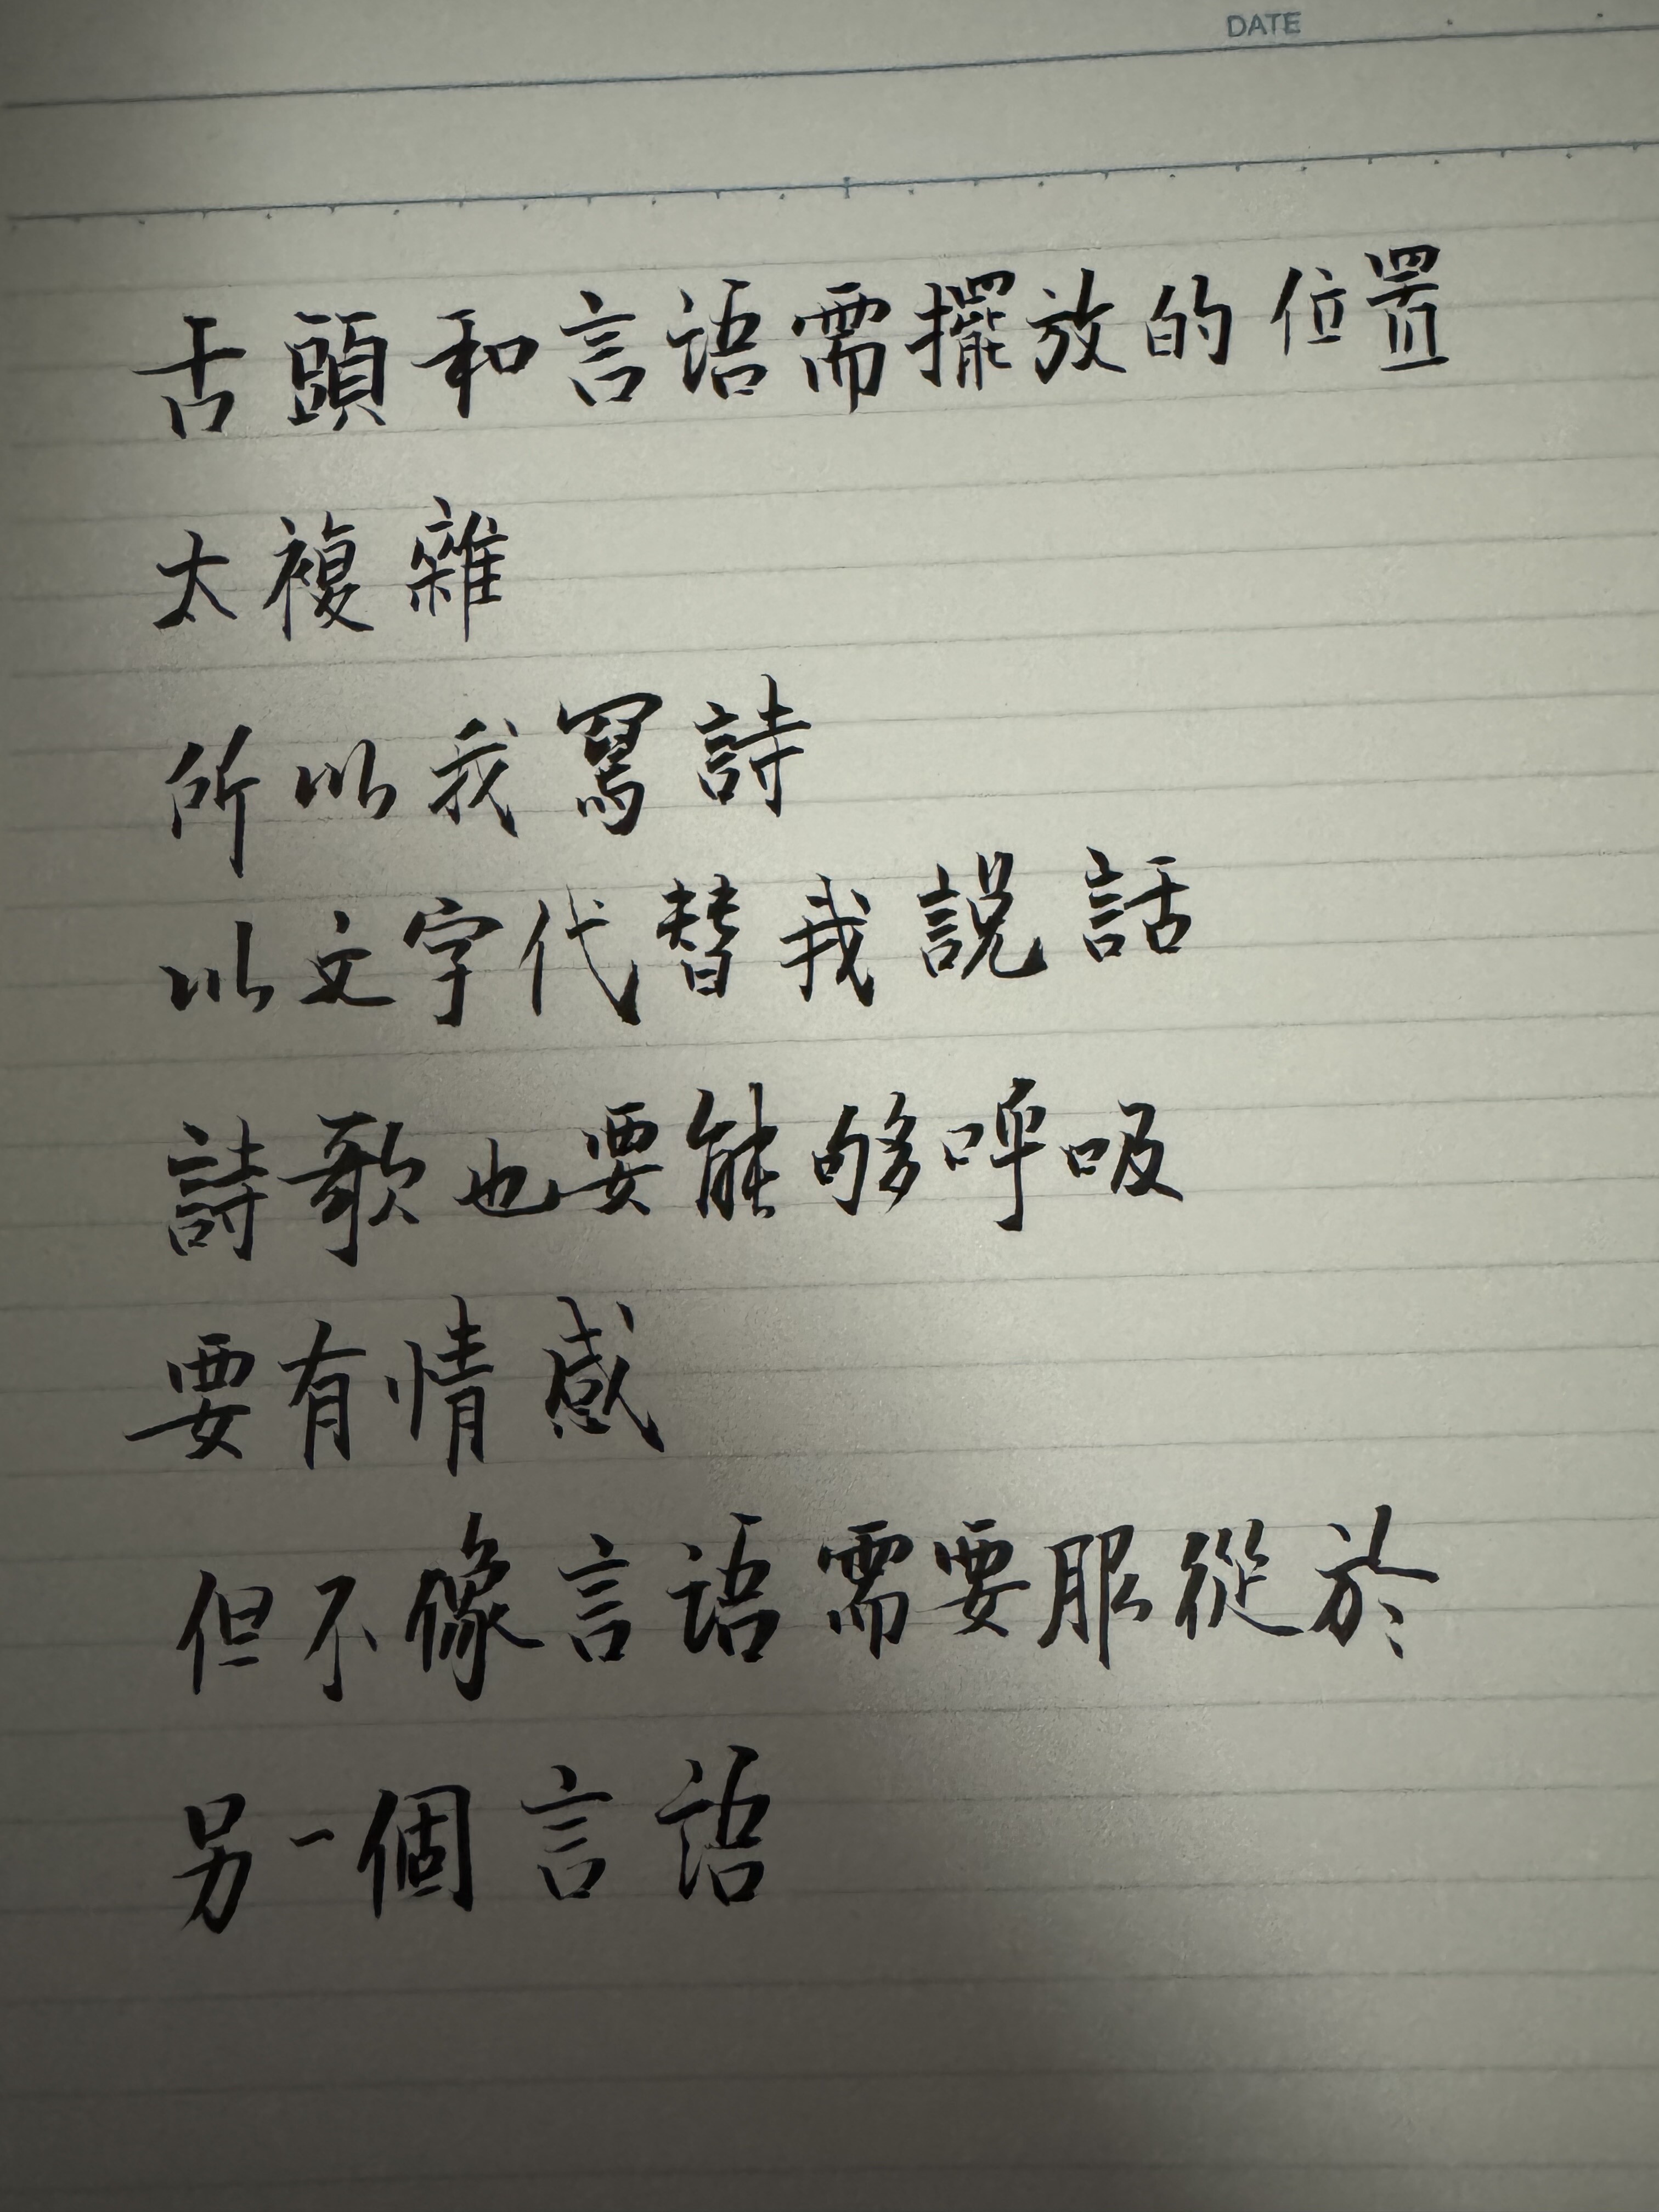 DATE
舌頭和言语需擺放的位置
太複雜
所以我寫詩
以文字代替我説話
詩歌也要能够呼吸
要有情感
但不像言语需要服從於
另一個言语